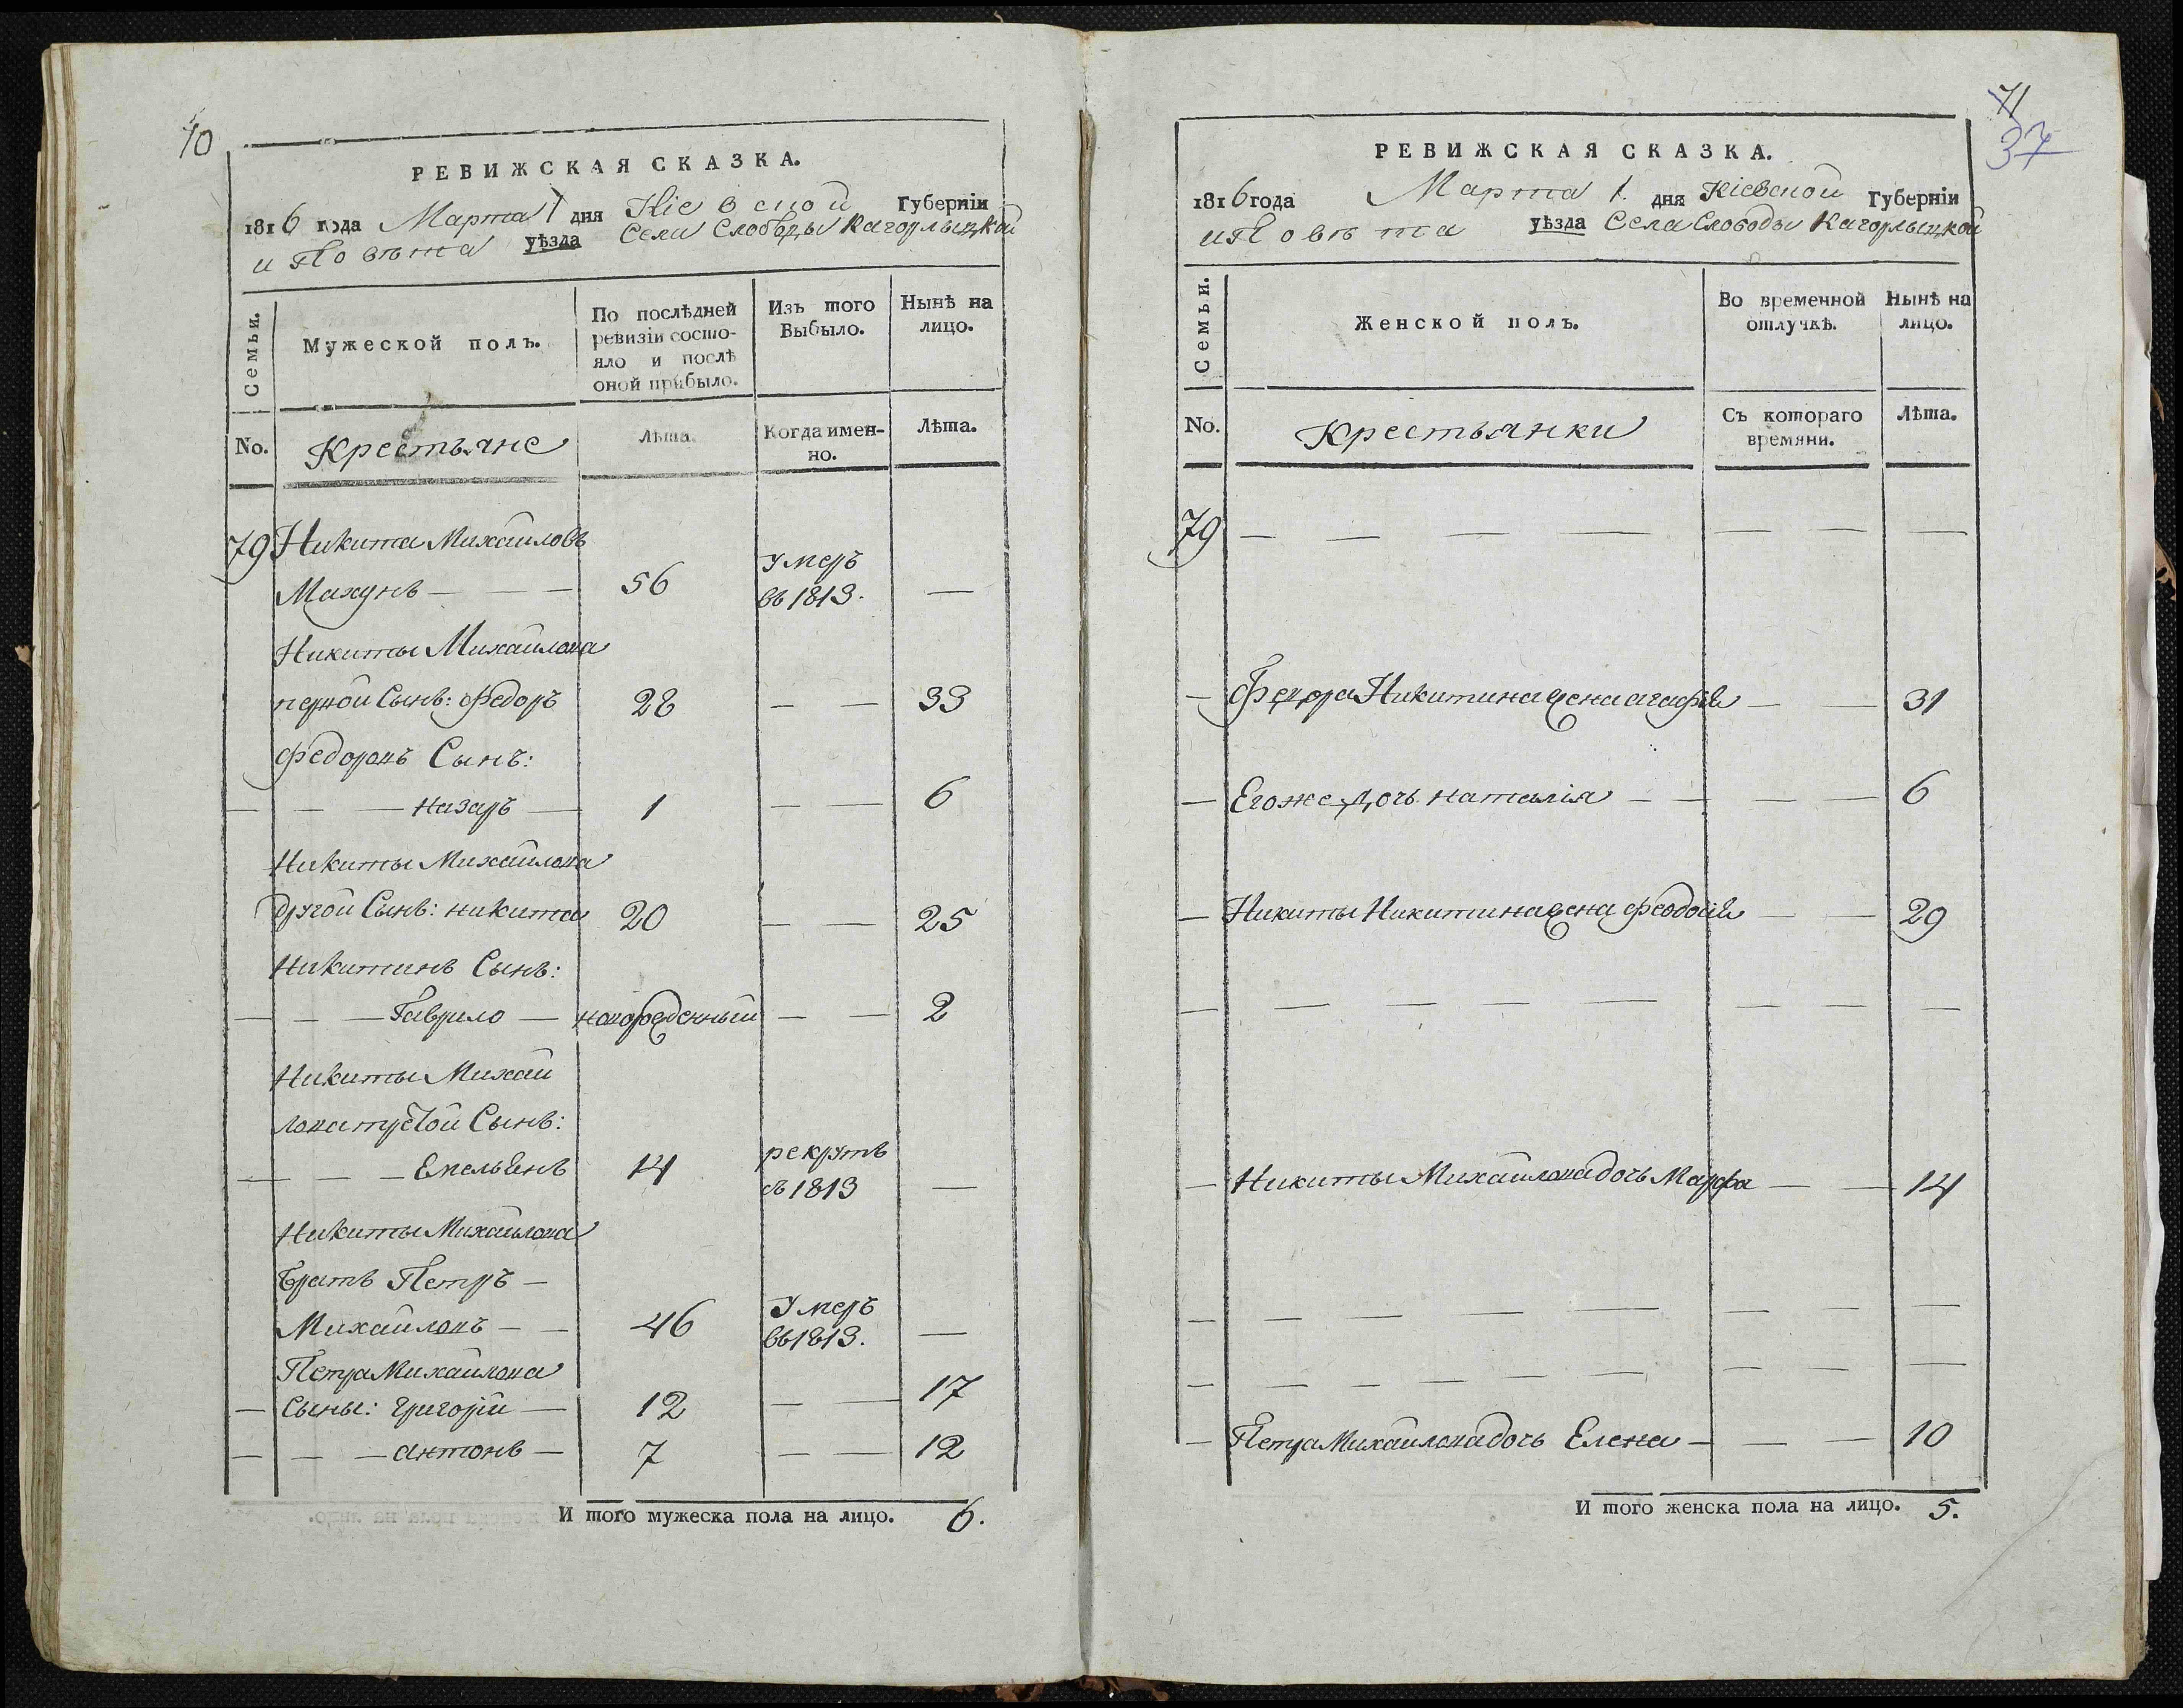 70
РЕВИЖСКАЯ СКАЗКА.
1816 года Марта 1 дня Кіевской Губерніи
и Повѣта уѣзда Села Слободы Кагорлыцкой
Семьи.
Мужеской полъ.
По послѣдней
ревизіи состо-
яло и послѣ
оной прибыло.
Изъ того
Выбыло.
Нынѣ на
лицо.
No.
Крестьяне
Лѣта.
Когда имен-
но.
Лѣта.
79 Никита Михайловъ
Махунъ — — — 56 Умеръ въ 1813. —
Никиты Михайлова
первой Сынъ: Федоръ 28 — — 33
Федоровъ Сынъ:
— — — Назаръ — 1 — — 6
Никиты Михайлова
другой Сынъ: Никита 20 — — 25
Никитинъ Сынъ:
— — — Гаврило — новорожденный — — 2
Никиты Михай
лова третой Сынъ:
— — — Емельянъ 14 рекрутъ въ 1813 —
Никиты Михайлова
Братъ Петръ —
Михайловъ — — 46 Умеръ въ 1813. —
Петра Михайлова
— Сыны: Григорій — 12 — — 17
— — — Антонъ — 7 — — 12
И того мужеска пола на лицо. 6.
71
37
РЕВИЖСКАЯ СКАЗКА.
1816 года Марта 1. дня Кіевской Губерніи
и Повѣта уѣзда Села Слободы Кагорлыцкой
Семьи.
Женской полъ.
Во временной
отлучкѣ.
Нынѣ на
лицо.
No.
Крестьянки
Съ котораго
времяни.
Лѣта.
79 — — — — — — — —
— Федора Никитина жена Агафія — — 31
— Егоже дочь Наталія — — — — 6
— Никиты Никитина жена Феодосія — — 29
— — — — — — — — —
— Никиты Михайлова дочь Марфа — — 14
— — — — — — — —
— — — — — — — — —
— Петра Михайлова дочь Елена — — — 10
И того женска пола на лицо. 5.